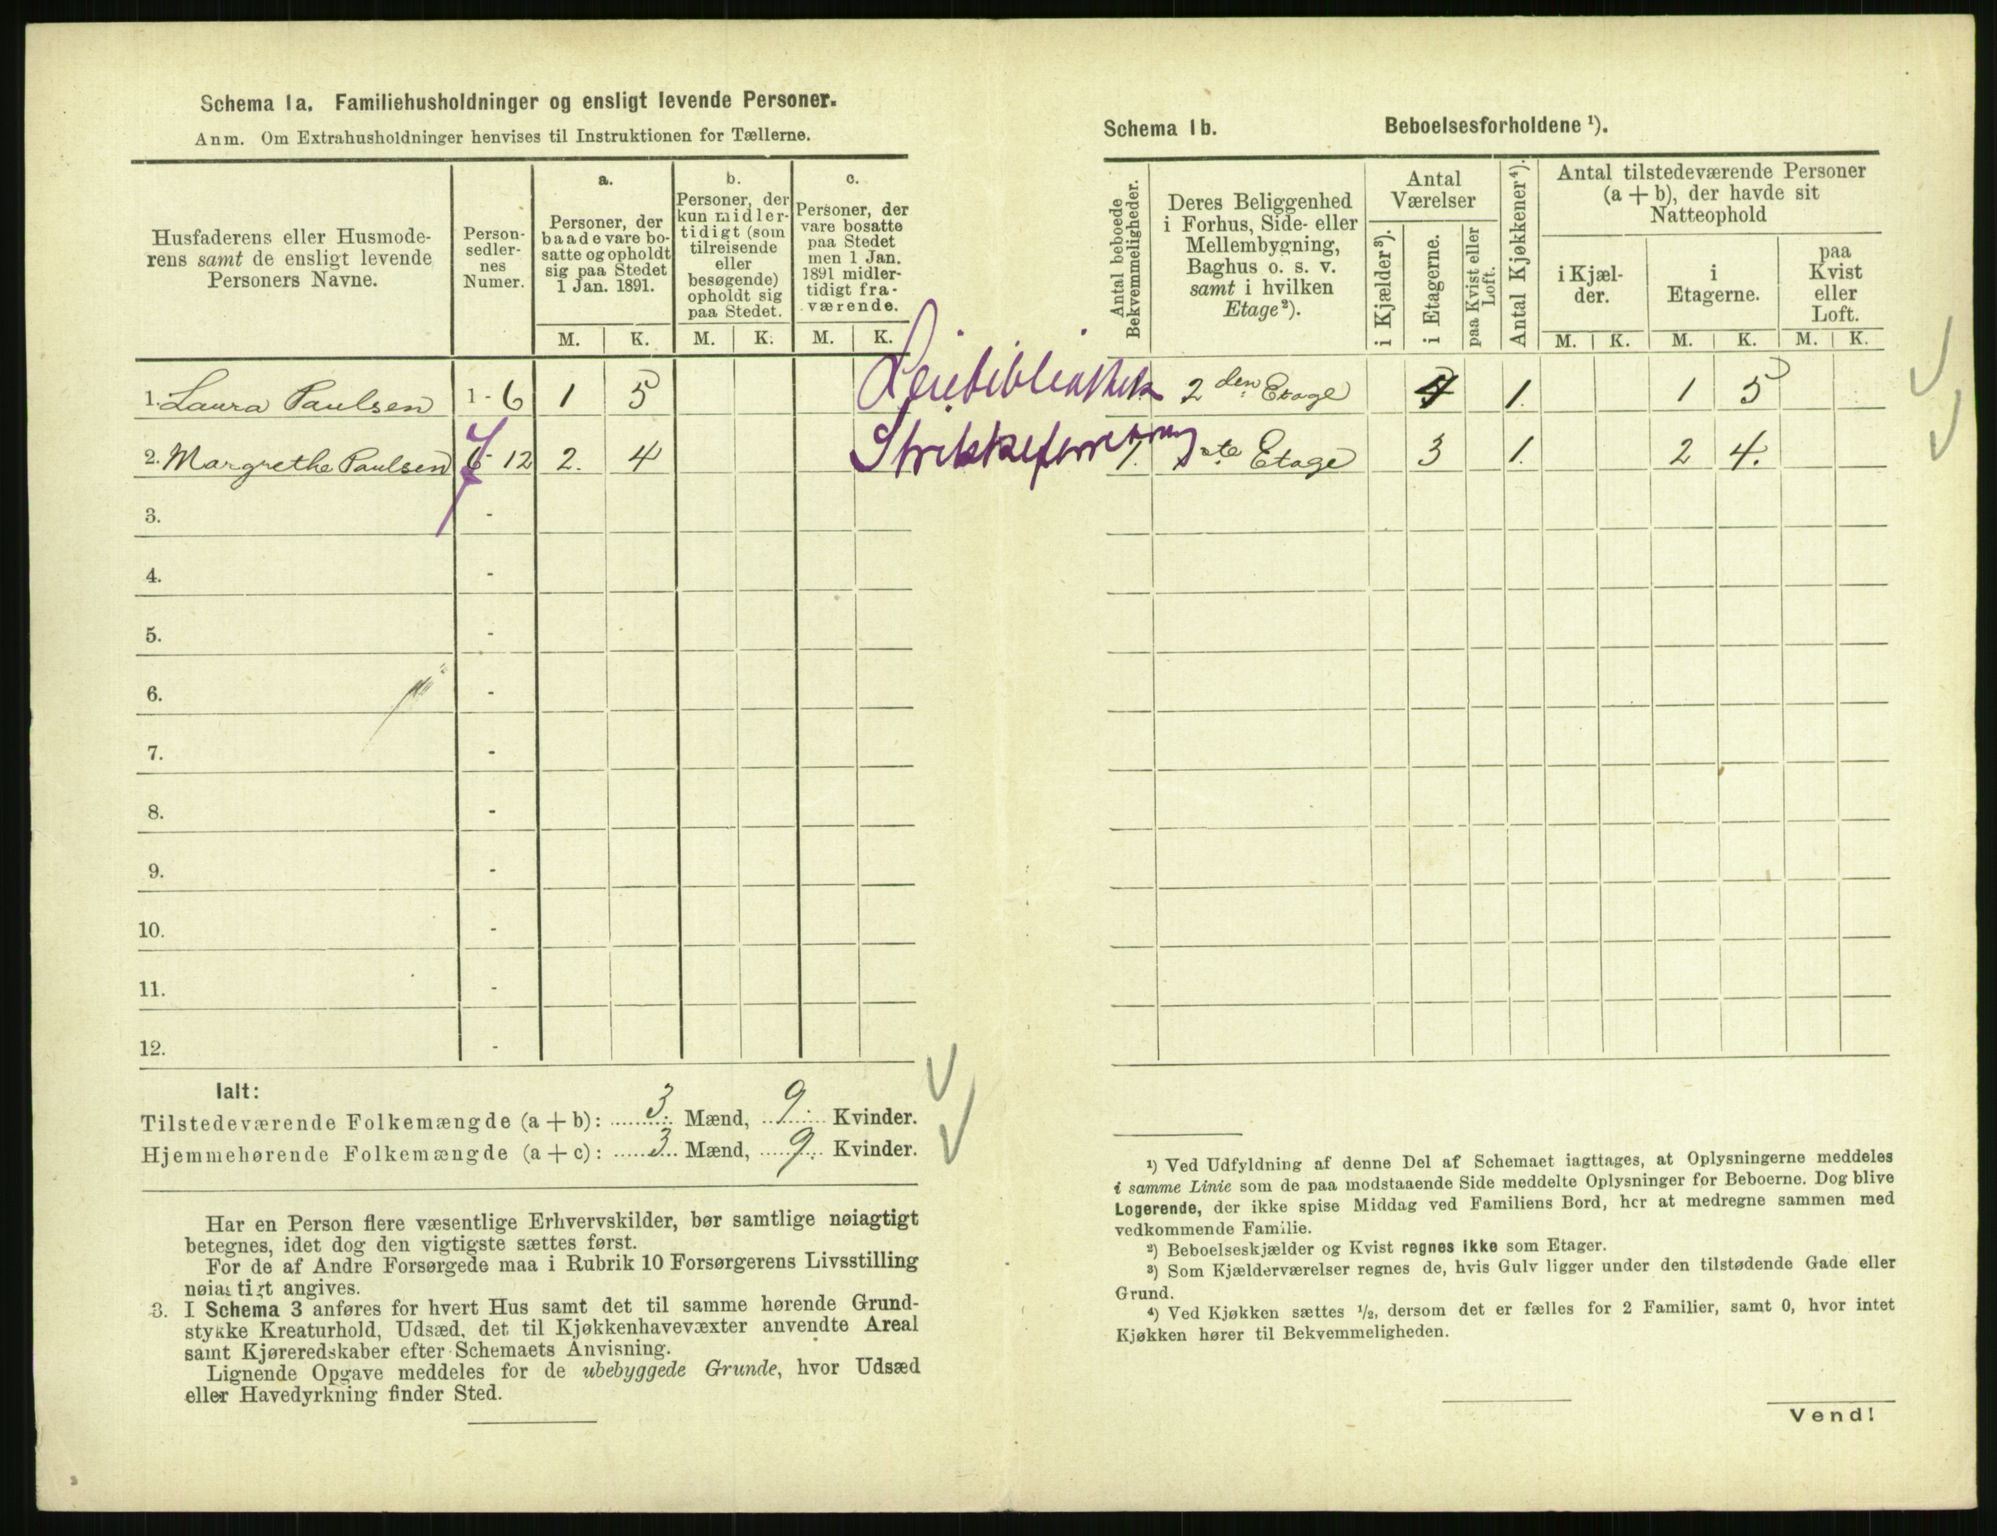 Schema 1a. Familiehusholdninger og ensligt levende Personer.
Anm. Om Extrahusholdninger henvises til Instruktionen for Tællerne.
Husfaderens eller Husmode-
rens samt de ensligt levende
Personers Navne.
Person-
sedler-
nes
Numer.
a.
Personer, der
baade vare bo-
satte og opholdt
sig paa Stedet
1 Jan. 1891.
b.
Personer, der
kun midler-
tidigt (som
tilreisende
eller
besøgende)
opholdt sig
paa Stedet.
c.
Personer, der
vare bosatte
paa Stedet
men 1 Jan.
1891 midler-
tidigt fra-
værende.
M. K. M. K. M. K.
1. Laura Paulsen 1 - 6 1 5 Leiebibliothek
2. Margrethe Paulsen 7 - 12 2. 4 Strikkeforretning
3. -
4. -
5. -
6. -
7. -
8. -
9. -
10. -
11. -
12. -
Ialt:
Tilstedeværende Folkemængde (a + b): 3 Mænd, 9 Kvinder.
Hjemmehørende Folkemængde (a + c): 3 Mænd, 9 Kvinder.
Har en Person flere væsentlige Erhvervskilder, bør samtlige nøiagtigt
betegnes, idet dog den vigtigste sættes først.
For de af Andre Forsørgede maa i Rubrik 10 Forsørgerens Livsstilling
nøiagtigt angives.
3. I Schema 3 anføres for hvert Hus samt det til samme hørende Grund-
stykke Kreaturhold, Udsæd, det til Kjøkkenhavevæxter anvendte Areal
samt Kjøreredskaber efter Schemaets Anvisning.
Lignende Opgave meddeles for de ubebyggede Grunde, hvor Udsæd
eller Havedyrkning finder Sted.
Schema 1b. Beboelsesforholdene ¹).
Antal beboede
Bekvemmeligheder.
Deres Beliggenhed
i Forhus, Side- eller
Mellembygning,
Baghus o. s. v.
samt i hvilken
Etage²).
Antal
Værelser
i Kjælder³).
i Etagerne.
paa Kvist eller
Loft.
Antal Kjøkkener⁴).
Antal tilstedeværende Personer
(a + b), der havde sit
Natteophold
i Kjæl-
der.
i
Etagerne.
paa
Kvist
eller
Loft.
M. K. M. K. M. K.
1. 2 den Etage 1. 1 5
1. 1 ste Etage 3 1. 2 4.
¹) Ved Udfyldning af denne Del af Schemaet iagttages, at Oplysningerne meddeles
i samme Linie som de paa modstaaende Side meddelte Oplysninger for Beboerne. Dog blive
Logerende, der ikke spise Middag ved Familiens Bord, her at medregne sammen med
vedkommende Familie.
²) Beboelseskjælder og Kvist regnes ikke som Etager.
³) Som Kjælderværelser regnes de, hvis Gulv ligger under den tilstødende Gade eller
Grund.
⁴) Ved Kjøkken sættes ½, dersom det er fælles for 2 Familier, samt 0, hvor intet
Kjøkken hører til Bekvemmeligheden.
Vend!